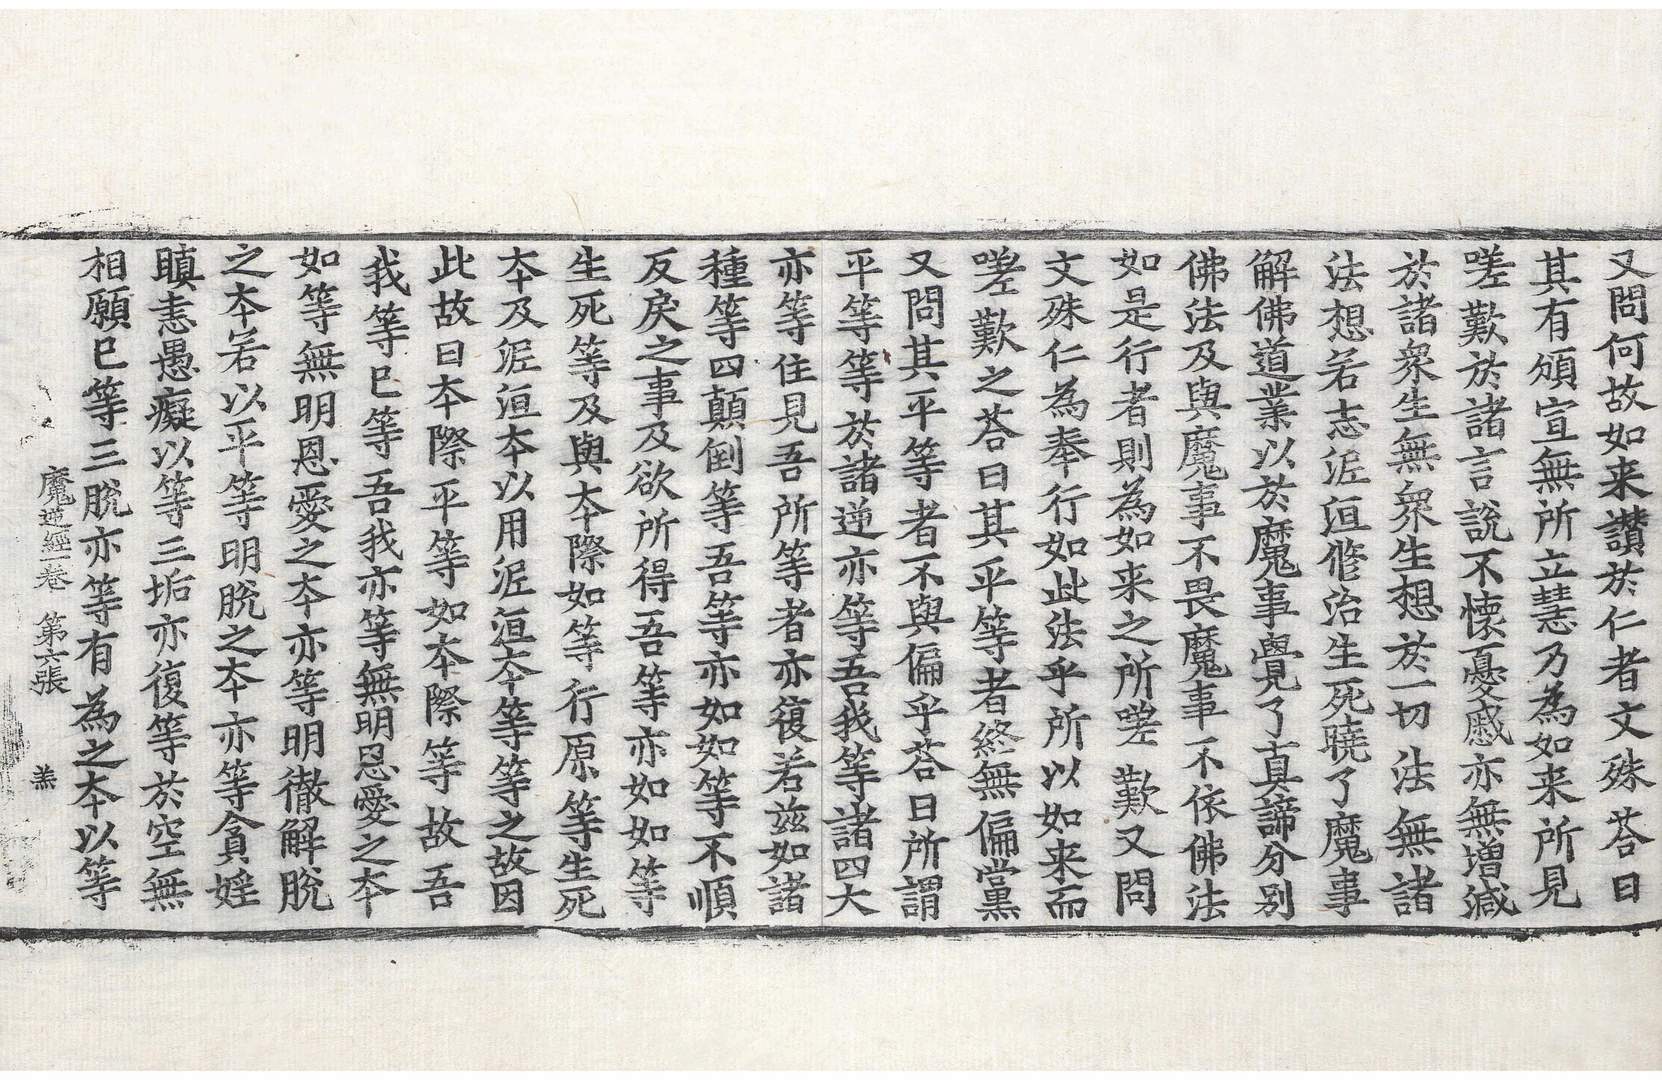 又問何故如来讃於仁者文殊荅曰
其有頒宣無所立慧乃為如来所見
嗟歎於諸言說不懷憂慼亦無增減
於諸衆生無衆生想於一切法無諸
法想若志泥洹修治生死曉了魔事
解佛道業以於魔事覺了真諦分别
佛法及與魔事不畏魔事不依佛法
如是行者則為如来之所嗟歎又問
文殊仁為奉行如此法乎所以如来而
嗟歎之荅曰其平等者終無偏黨
又問其平等者不與偏乎荅曰所謂
平等等於諸逆亦等吾我等諸四大
亦等住見吾所等者亦復若茲如諸
種等四顛倒等吾等亦如如等不順
反戾之事及欲所得吾等亦如如等
生死等及與夲際如等行原等生死
夲及泥洹夲以用泥洹夲等等之故因
此故曰夲際平等如夲際等故吾
我等巳等吾我亦等無明恩愛之夲
如等無明恩愛之夲亦等明徹解脫
之夲若以平等明脫之夲亦等貪婬
瞋恚愚癡以等三垢亦復等於空無
相願巳等三脫亦等有為之夲以等
魔逆經一卷 第六張 羔